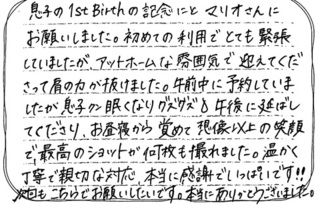 息子の1st Birthの記念にと マリオさんに
お願いしました。初めての利用でとても緊張
していましたが、アットホームな雰囲気で迎えてくだ
さって肩の力が抜けました。午前中に予約していま
したが息子クン眠くなりグズグズ💧午後に延ばし
てくださり、お昼寝から覚めて想像以上の笑顔
で、最高のショットが何枚も撮れました。温かく
丁寧で親切な対応、本当に感謝でいっぱいです!!
次回もこちらでお願いしたいです。本当にありがとうございました。